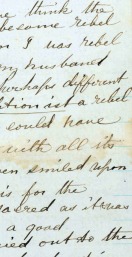 think the
become rebel
I was rebel
my husband
Perhaps different
ction is a rebel
could have
with all its
en smiled upon
is for the
sacred as it was
a good
ried out to the